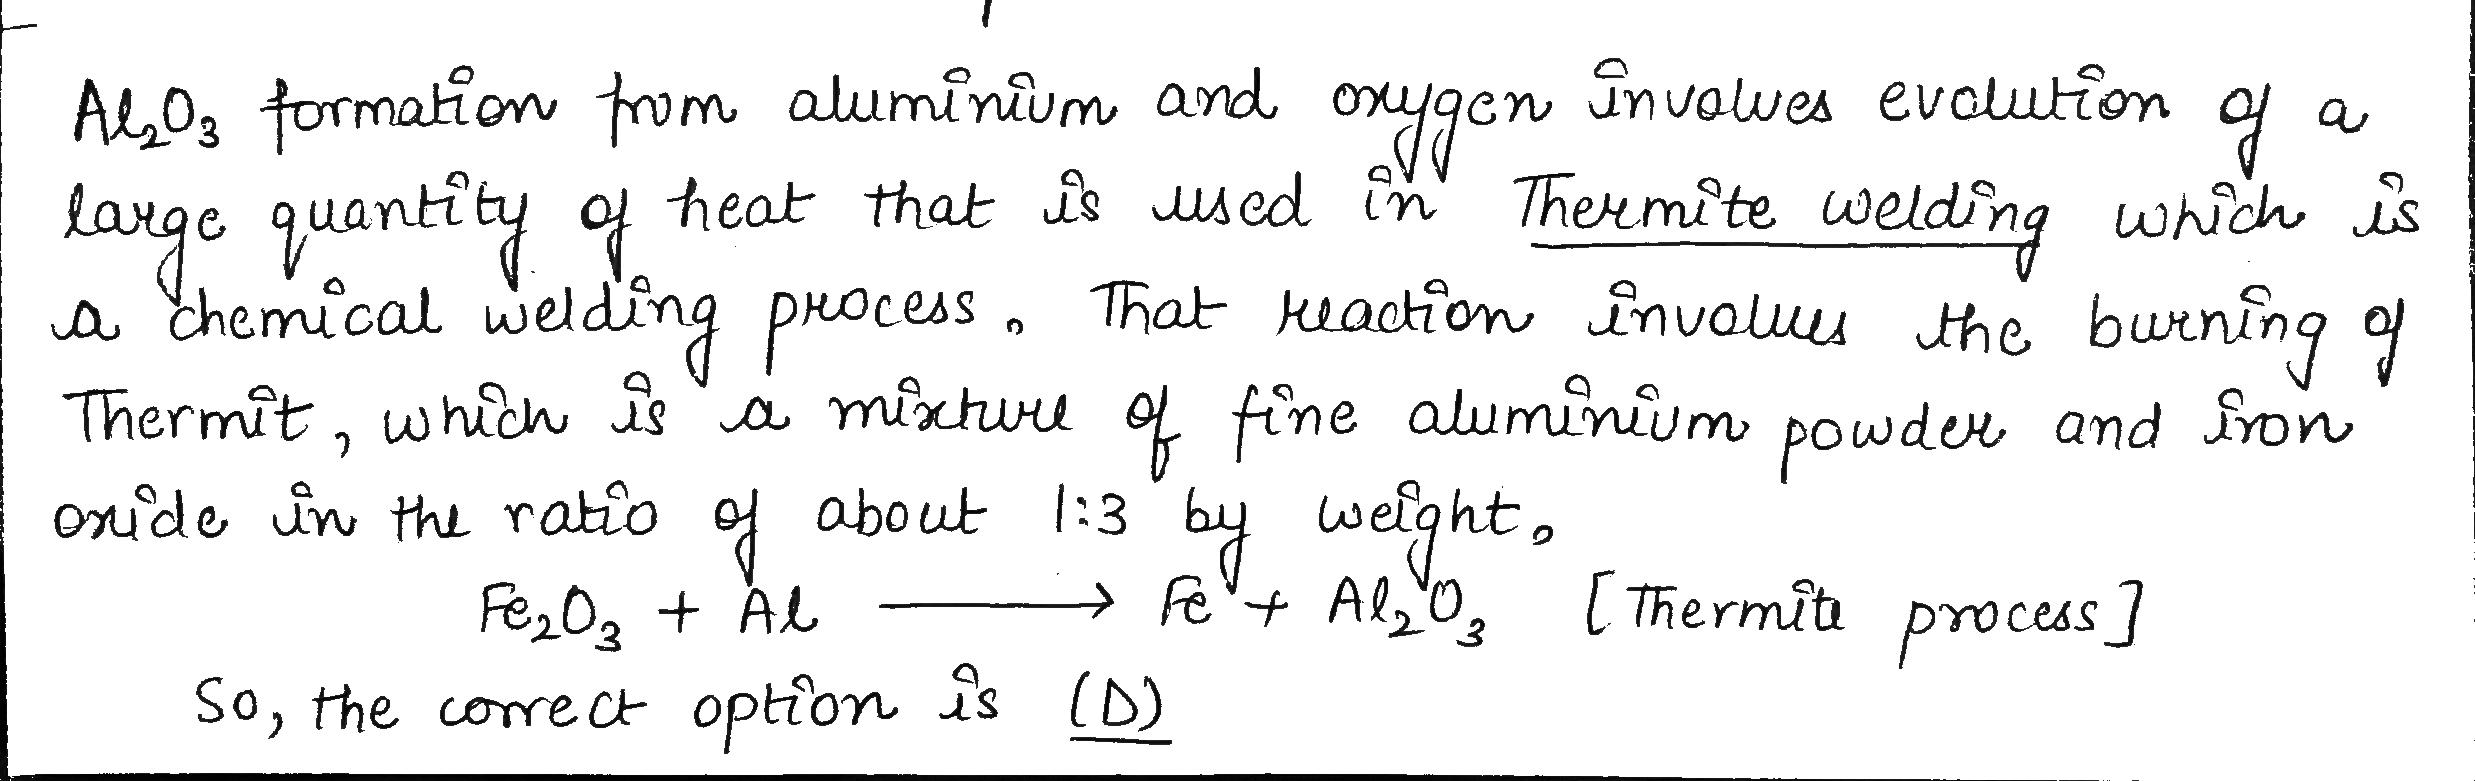 Al₂O₃ formation from aluminium and oxygen involves evolution of a
large quantity of heat that is used in Thermite welding which is
a chemical welding process. That reaction involves the burning of
Thermit, which is a mixture of fine aluminium powder and iron
oxide in the ratio of about 1:3 by weight.
Fe₂O₃ + Al ⟶ Fe + Al₂O₃ [Thermite process]
So, the correct option is (D)